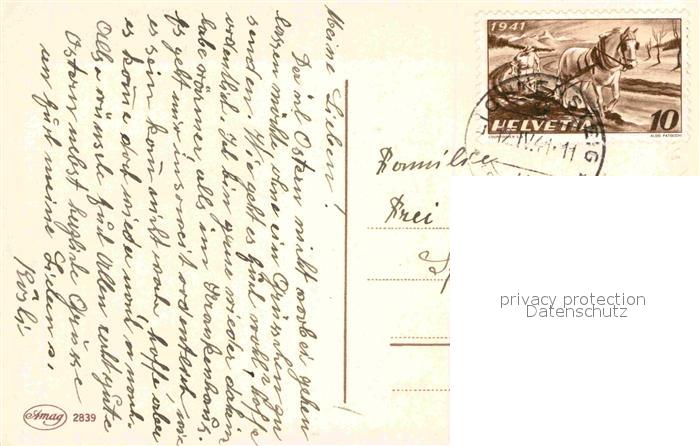 Meine Lieben!
Da ich Ostern nicht vorbei gehen
lassen möchte, ohne ein Grüsschen zu
senden. Wie geht es Euch wohl, hoffe
ordentlich. Ich bin gerne wieder daheim
habe wärmer als im Krankenhaus.
Es geht mir insoweit ordentlich wie
es sein kann nicht wahr hoffe aber
es komme doch wieder
Also wünsche Euch Allen recht gute
Ostern nebst herzliche Grüsse
an Euch meine Lieben s.
Rösli
Amag 2839
1941
HELVETIA 10
ALDO PATOCCHI
Familie
Frei
privacy protection
Datenschutz